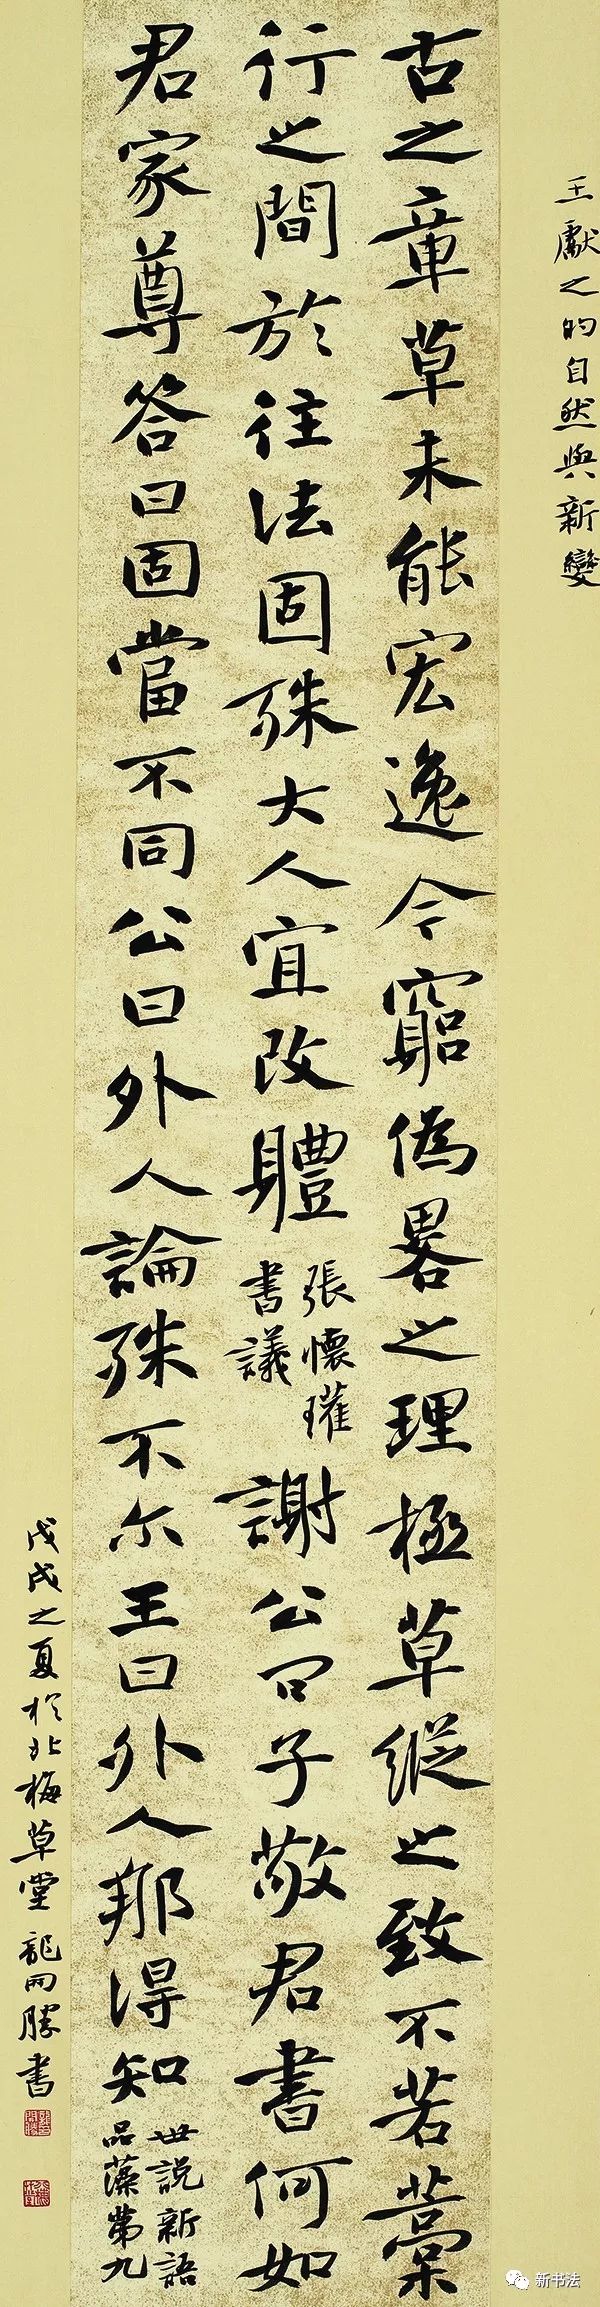 王獻之的自然與新變
古之章草未能宏逸今窮偽畧之理極草縱之致不若藁
行之間於往法固殊大人宜改體
張懷瓘
書議
謝公問子敬君書何如
君家尊答曰固當不同公曰外人論殊不尔王曰外人那得知
世說新語
品藻第九
戊戌之夏於北梅草堂龍開勝書
新书法